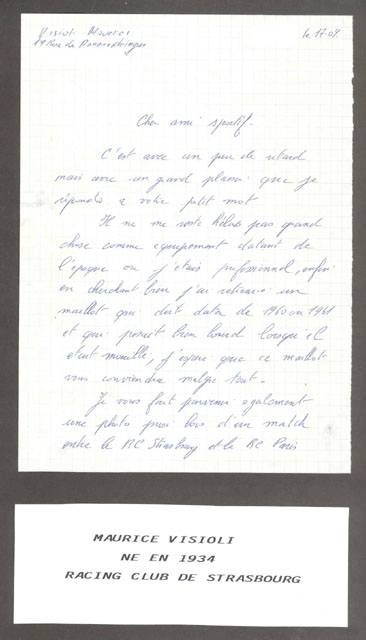 Visioli Maurice
19 Rue de
le 17.09.
Cher ami sportif.
C'est avec un peu de retard
mais avec un grand plaisir que je
réponds à votre petit mot
Il ne me reste hélas pas grand
chose comme equipement datant de
l'epoque ou j'etais professionnel, enfin
en cherchant bien j'ai retrouvé un
maillot qui doit dater de 1960 ou 1961
et qui parait bien lourd lorsqu'il
etait mouillé, j'espere que ce maillot
vous conviendra malgre tout.
Je vous fait parvenir également
une photo prise lors d'un match
entre le RC Strasbourg et le RC Paris
MAURICE VISIOLI
NE EN 1934
RACING CLUB DE STRASBOURG